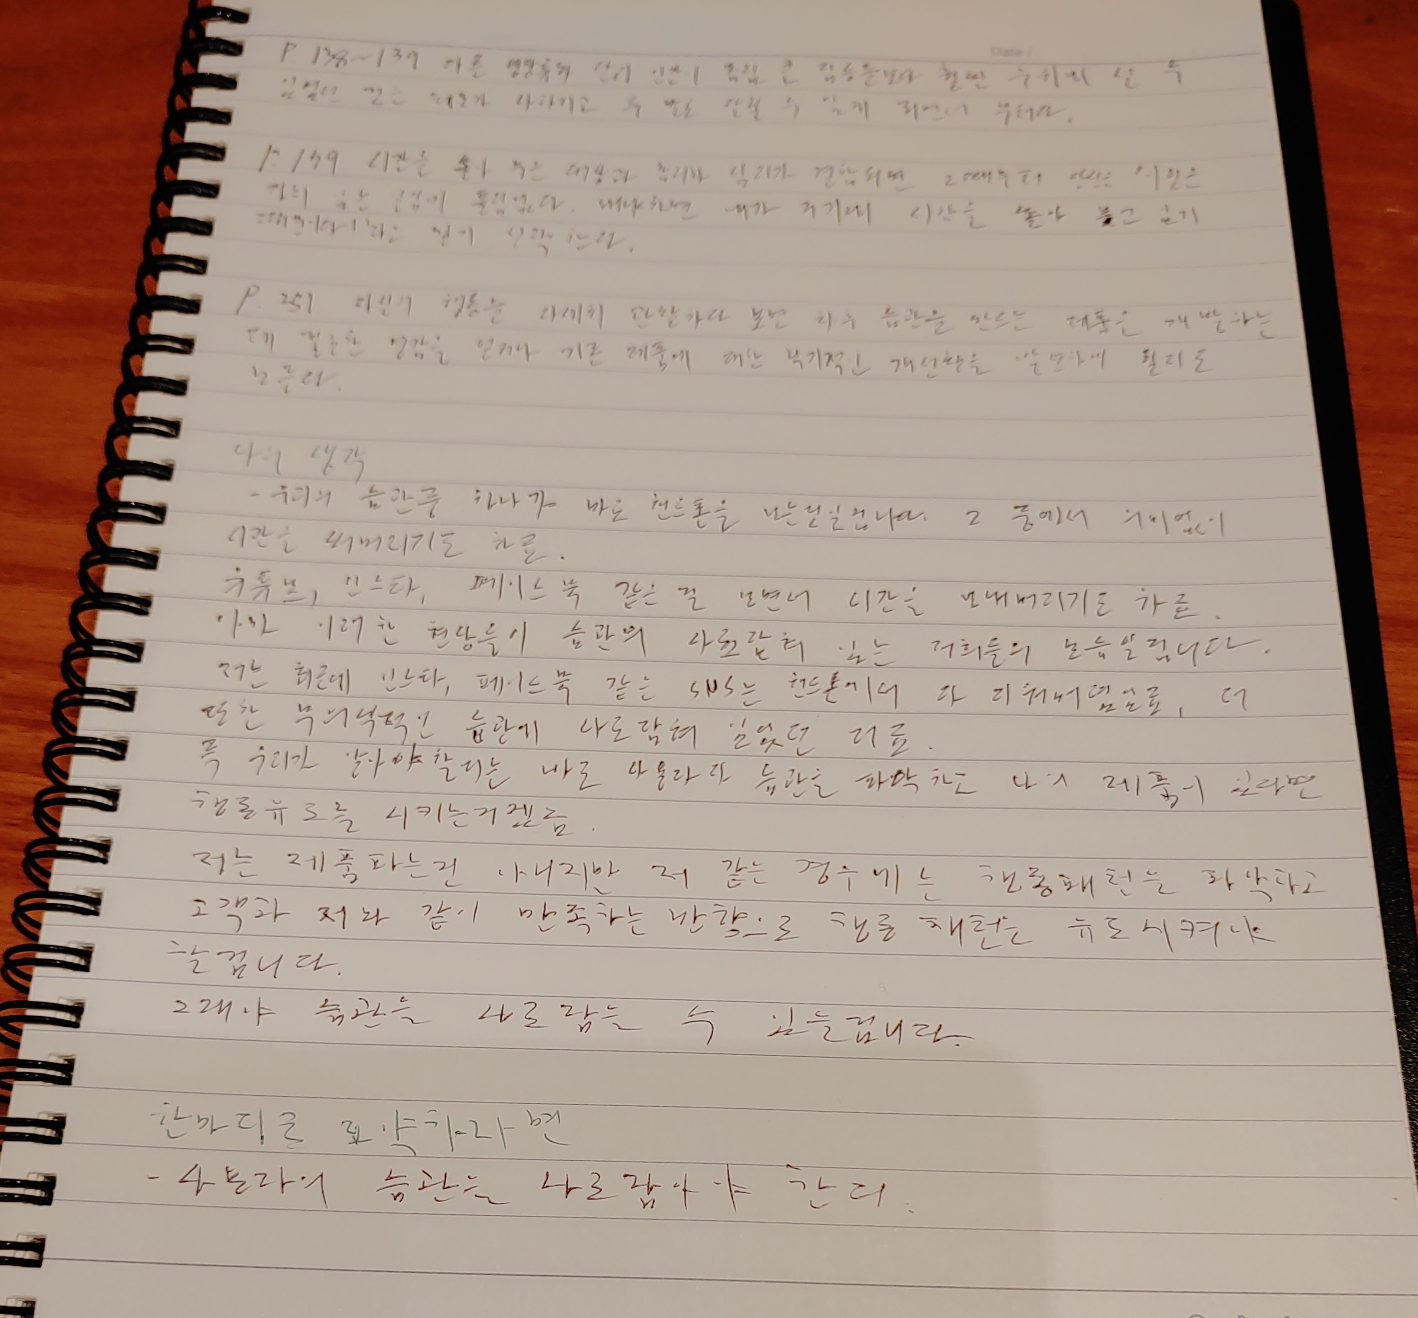 P 138~139 다른 영장류와 달리 인간이 몸집 큰 짐승들보다 훨씬 우위에 설 수
있었던 것은 털이 사라지고 두 발로 달릴 수 있게 되면서 부터다.
P. 139 시간을 쏟아 부은 대상과 합리화 심리가 결합되면 그때부터 당신은
하고 있는 게임에 몰입
때문이다
P. 257 자신의 행동을 자세히 관찰하다 보면 차후 습관을 만드는 제품을 개발하는
데 필요한 영감을 얻거나 기존 제품에 대한 획기적인 개선책을 발견하게 될지도
모른다.
나의 생각
- 우리의 습관중 하나가 바로 핸드폰을 보는것일겁니다. 그 중에서 의미없이
시간을 써버리기도 하죠.
유튜브, 인스타, 페이스북 같은 걸 보면서 시간을 보내버리기도 하죠.
아마 이러한 현상들이 습관의 사로잡혀 있는 저희들의 모습일겁니다.
저는 최근에 인스타, 페이스북 같은 SNS는 핸드폰에서 다 지워버렸읍죠, 저
또한 무의식적인 습관에 사로잡혀 있었던 거죠.
즉 우리가 알아야할것은 바로 사용자의 습관을 파악하고 나의 제품이 있다면
행동유도를 시키는거겠죠.
저는 제품파는건 아니지만 저 같은 경우에는 행동패턴을 파악하고
고객과 저와 같이 만족하는 방향으로 행동 패턴을 유도시켜야
할겁니다.
그래야 습관을 사로잡을 수 있을겁니다.
한마디로 요약하라면
- 사용자의 습관을 사로잡아야 한다.